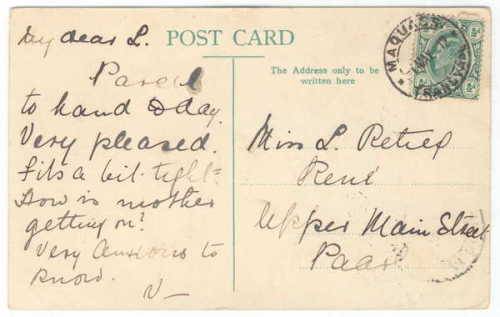 My dear L.
Parcel
to hand today.
Very pleased.
Fits a bit tight-
How is mother
getting on?
Very anxious to
know.
V—
POST CARD
The Address only to be
written here
Miss L. Retief
René
Upper Main Street
Paarl
MAQUASSI
TRANSVAAL